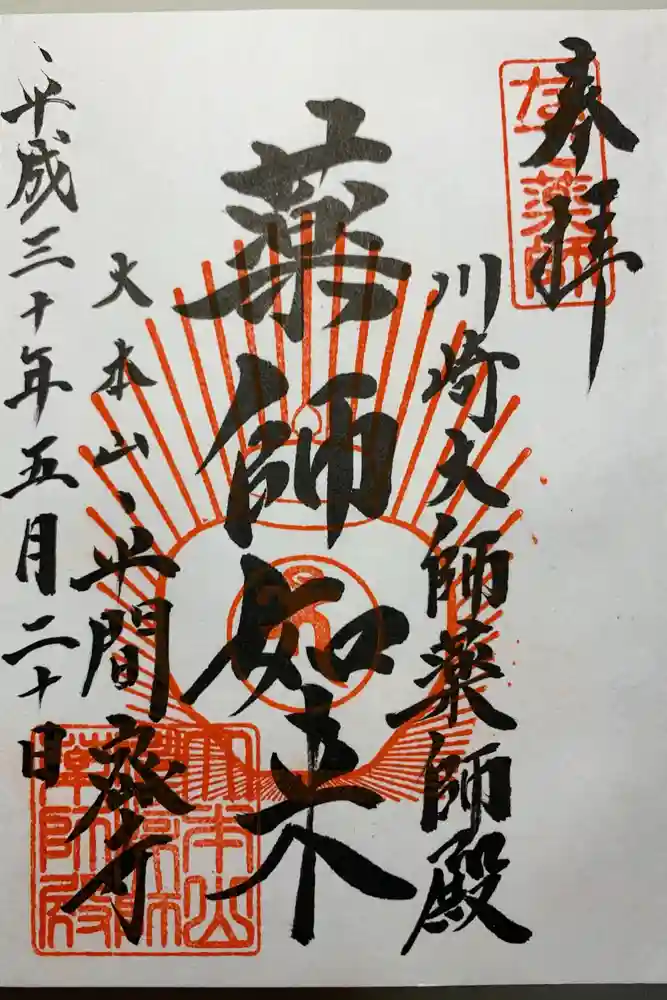 奉拝
なで薬師
川崎大師薬師殿
薬師如来
大本山 平間寺
平成三十年五月二十日